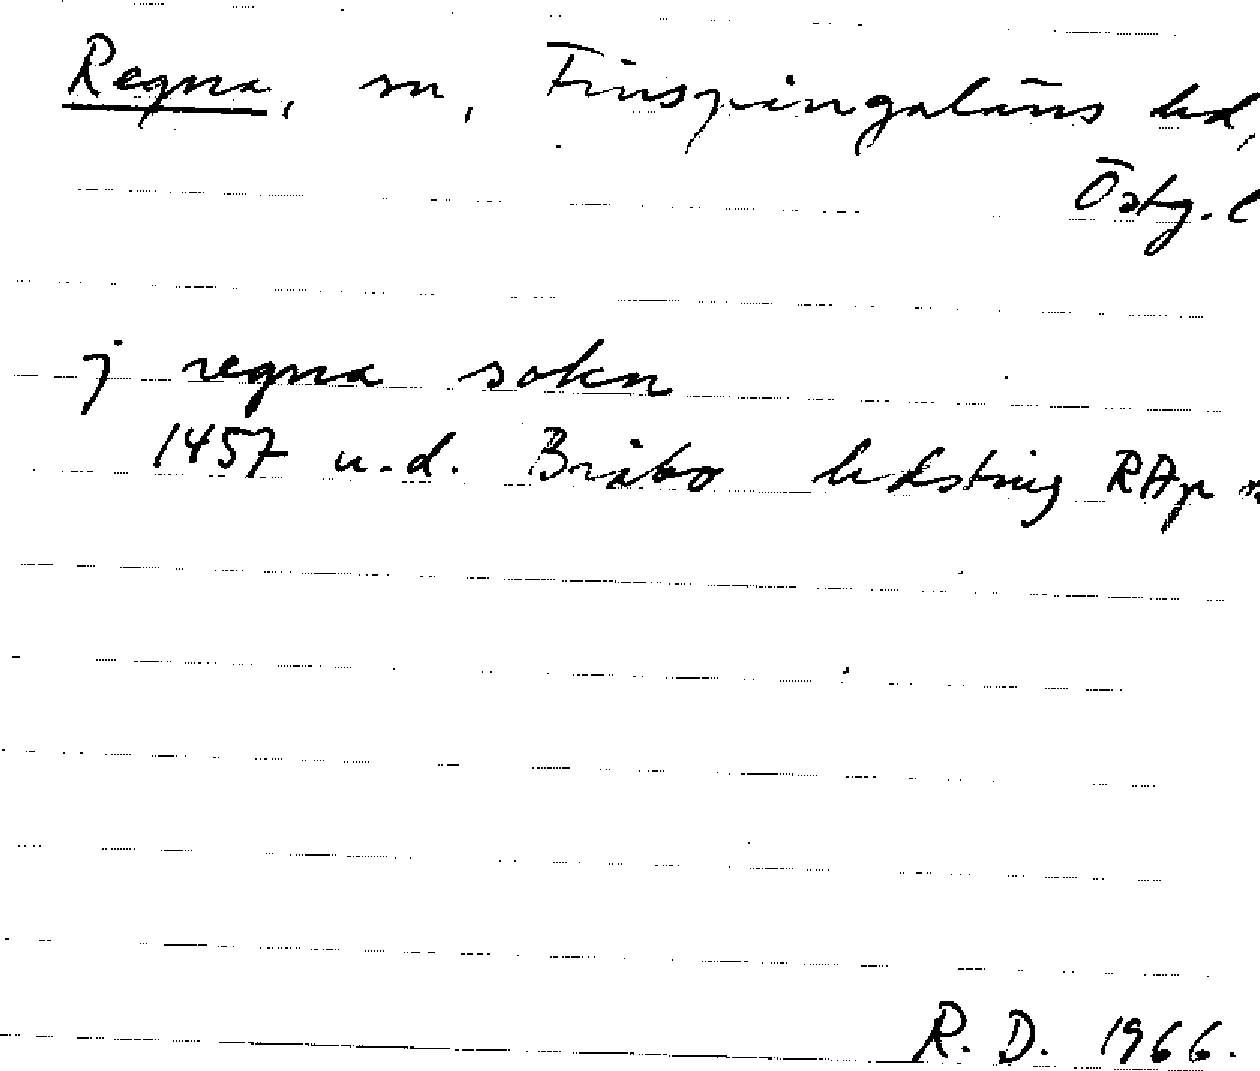 Regna, sn, Finspångaläns hd,
Östg. l
j regna sokn
1457 u.d. Bråbo hdsting RAp
R. D. 1966.